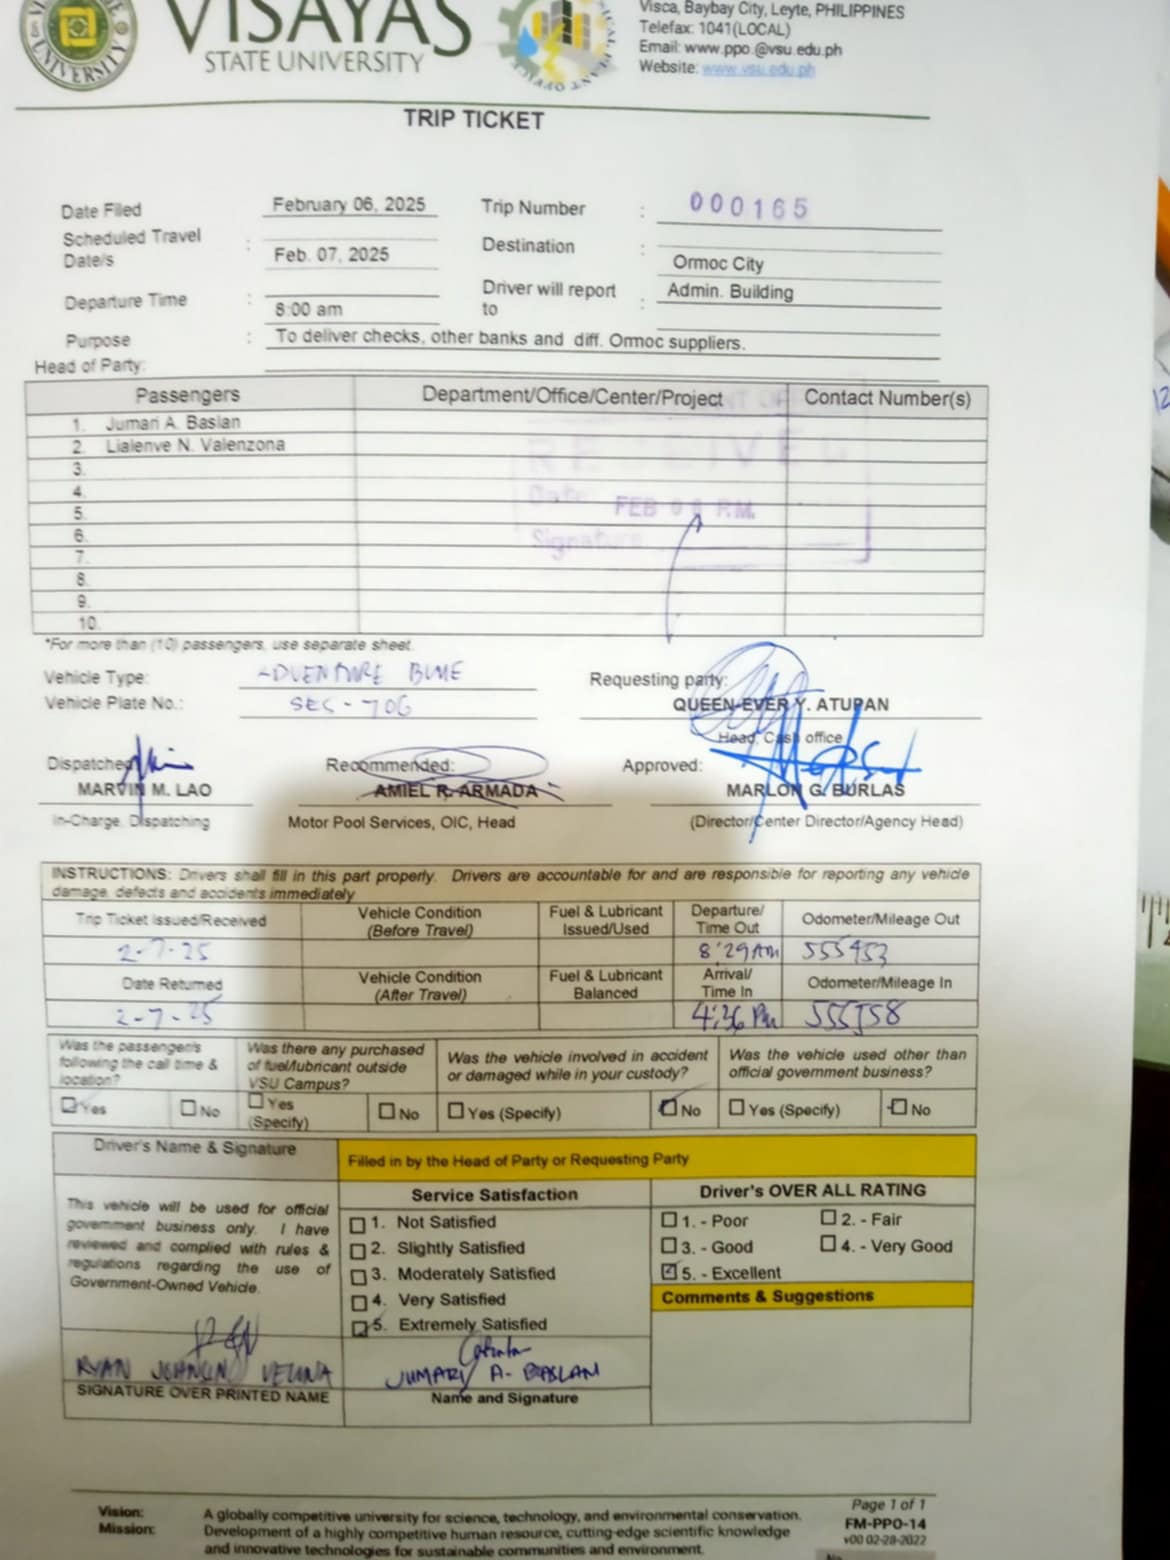 VISAYAS
STATE UNIVERSITY
UNIVERSITY
Visca, Baybay City, Leyte, PHILIPPINES
Telefax: 1041(LOCAL)
Email: www.ppo.@vsu.edu.ph
Website: www.vsu.edu.ph
TRIP TICKET
Date Filed February 06, 2025 Trip Number : 000165
Scheduled Travel Date/s : Feb. 07, 2025 Destination : Ormoc City
Departure Time : 8:00 am Driver will report to : Admin. Building
Purpose : To deliver checks, other banks and diff. Ormoc suppliers.
Head of Party:
Passengers Department/Office/Center/Project Contact Number(s)
1. Jumari A. Baslan
2. Lialenve N. Valenzona
3.
4.
5.
6.
7.
8.
9.
10.
RECEIVED
Date: FEB P.M.
Signature
*For more than (10) passengers, use separate sheet.
Vehicle Type: ADVENTURE BLUE Requesting party:
Vehicle Plate No.: SES-706 QUEEN-EVER Y. ATUPAN
Head, Cash office
Dispatched Recommended: Approved:
MARVIN M. LAO AMIEL R. ARMADA MARLON G. BURLAS
In-Charge, Dispatching Motor Pool Services, OIC, Head (Director/Center Director/Agency Head)
INSTRUCTIONS: Drivers shall fill in this part properly. Drivers are accountable for and are responsible for reporting any vehicle
damage, defects and accidents immediately
Trip Ticket Issued/Received Vehicle Condition (Before Travel) Fuel & Lubricant Issued/Used Departure/ Time Out Odometer/Mileage Out
2-7-25 8:29AM 555453
Date Returned Vehicle Condition (After Travel) Fuel & Lubricant Balanced Arrival/ Time In Odometer/Mileage In
2-7-25 4:36 PM 555558
Was the passenger/s following the call time & location? Was there any purchased of fuel/lubricant outside VSU Campus? Was the vehicle involved in accident or damaged while in your custody? Was the vehicle used other than official government business?
Yes No Yes (Specify) No Yes (Specify) No Yes (Specify) No
Driver's Name & Signature Filled in by the Head of Party or Requesting Party
Service Satisfaction Driver's OVER ALL RATING
This vehicle will be used for official
government business only. I have
reviewed and complied with rules &
regulations regarding the use of
Government-Owned Vehicle.
1. Not Satisfied
2. Slightly Satisfied
3. Moderately Satisfied
4. Very Satisfied
5. Extremely Satisfied
1. - Poor 2. - Fair
3. - Good 4. - Very Good
5. - Excellent
Comments & Suggestions
RYAN JUMARI A. BASLAN
SIGNATURE OVER PRINTED NAME Name and Signature
Vision: A globally competitive university for science, technology, and environmental conservation.
Mission: Development of a highly competitive human resource, cutting-edge scientific knowledge
and innovative technologies for sustainable communities and environment.
Page 1 of 1
FM-PPO-14
v00 02-28-2022
No.